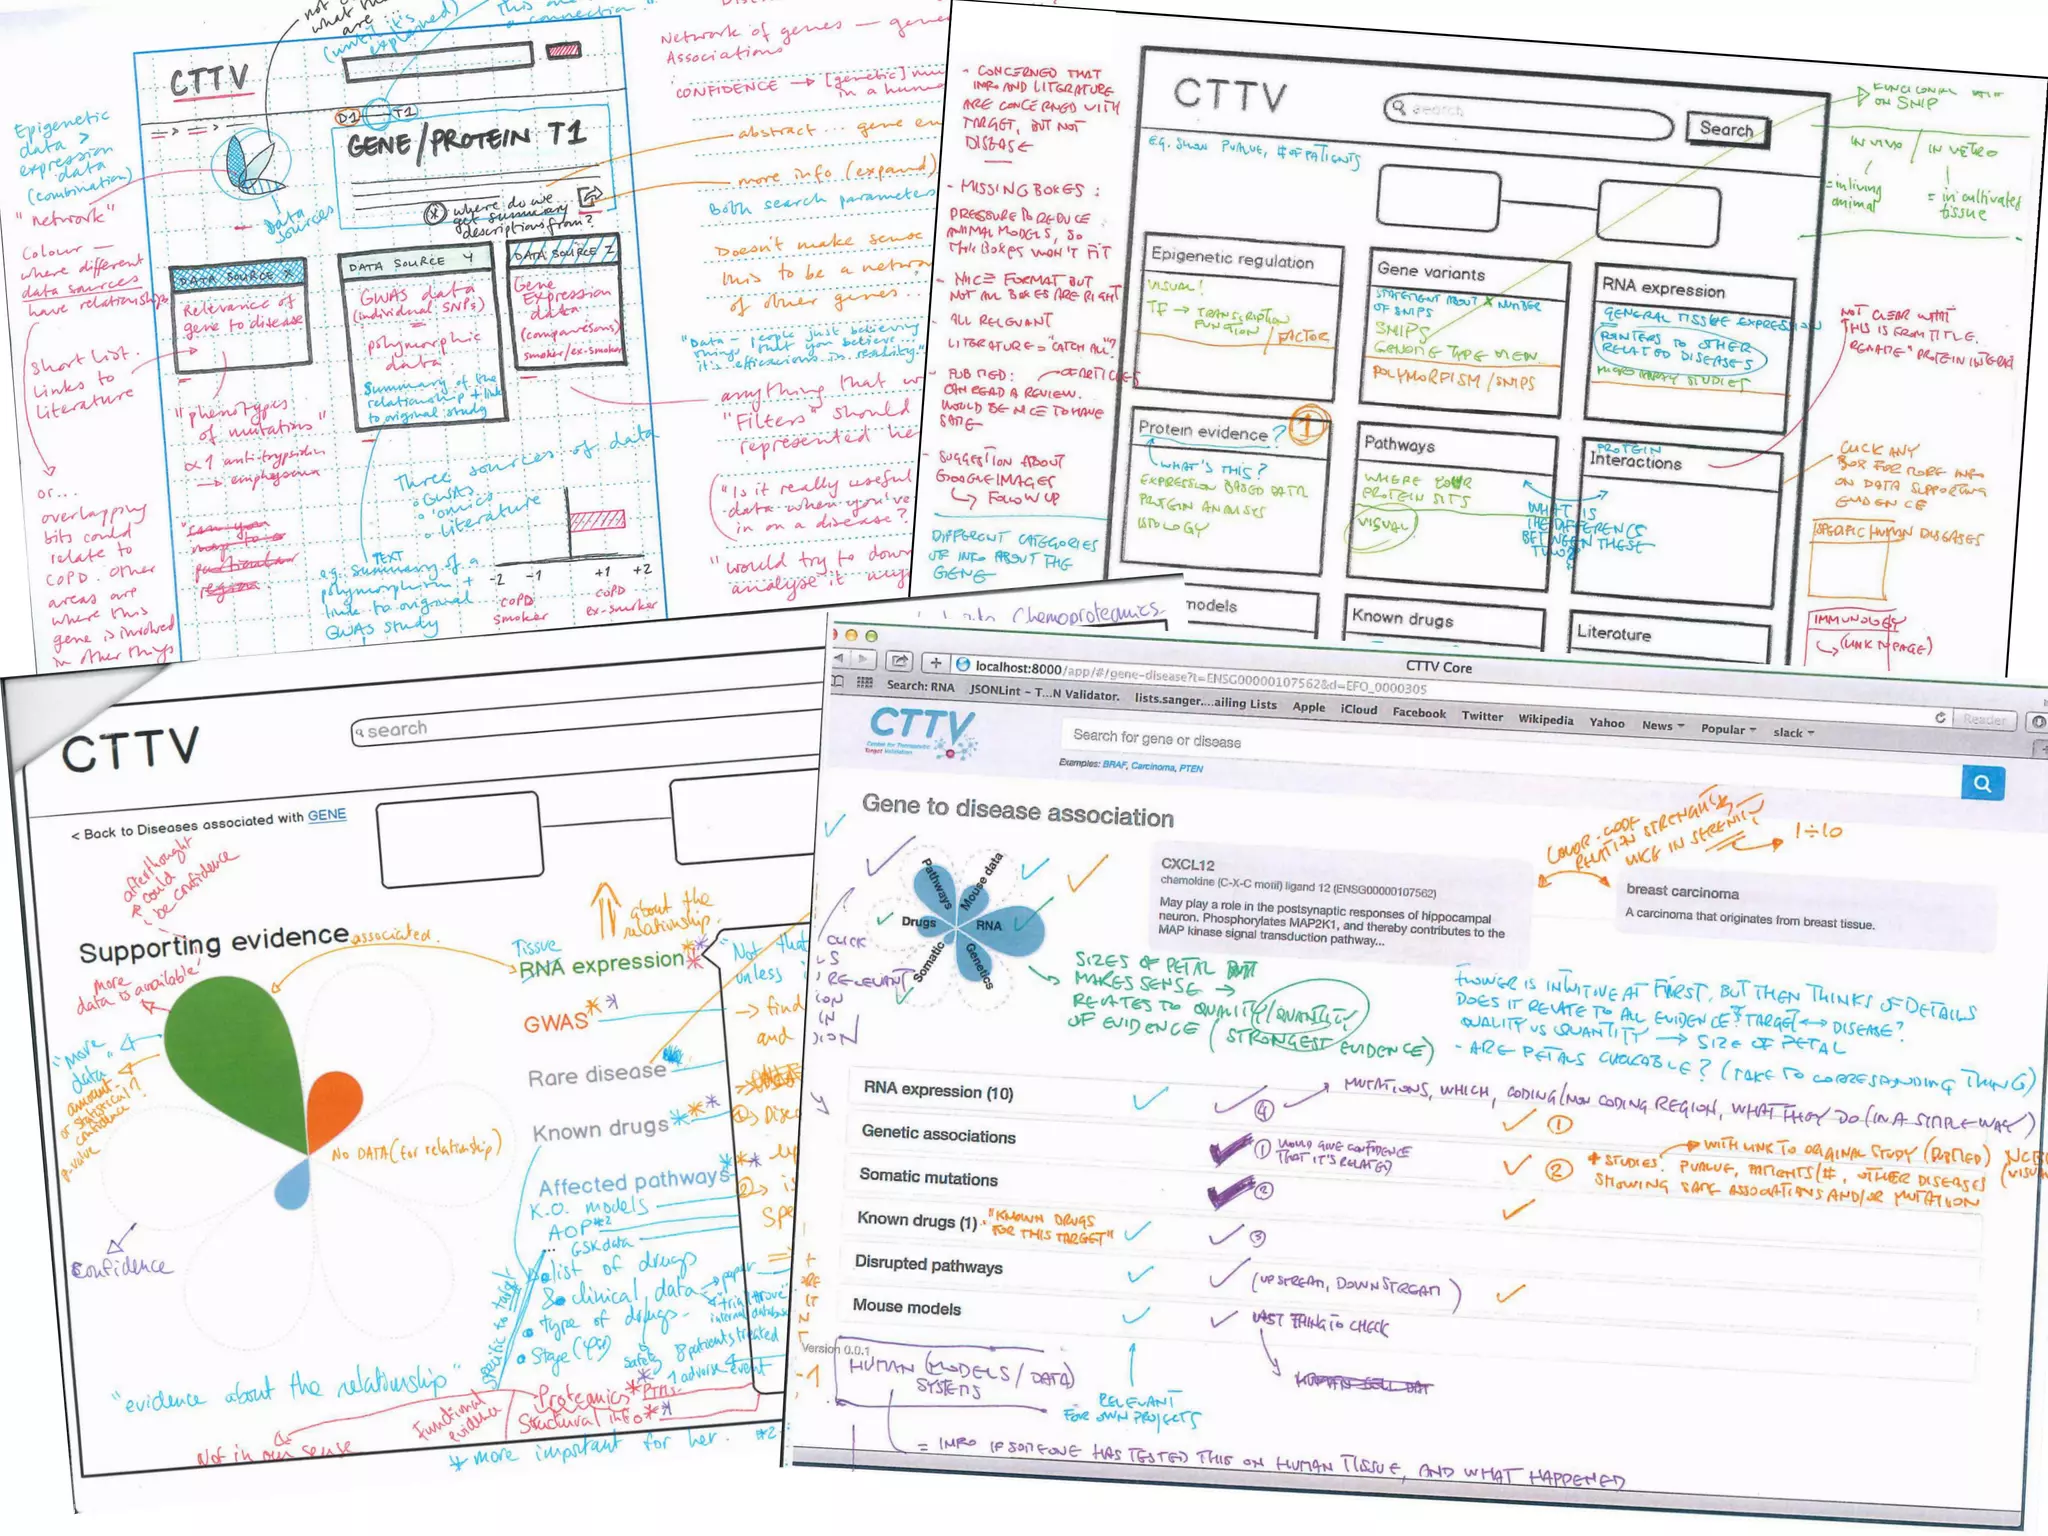 CTTV
(until it's
explained)
D1
T1
GENE/PROTEIN T1
where do we
get summary
descriptions from?
Epigenetic
data >
expression
data
(combination)
"network"
Data
sources
Colour —
where different
data sources
have relationships
short list.
links to
literature
or...
overlapping
bits could
relate to
COPD. other
areas are
where this
gene is involved
in other things
DATA SOURCE X
Relevance of
gene to disease
DATA SOURCE Y
GWAS data
(individual SNPs)
polymorphic
data
Summary of the
relationship + link
to original study
DATA SOURCE Z
Gene
Expression
data
(comparisons)
smoker/ex-smoker
"phenotypes
of mutations"
α1 antitrypsin
→ emphysema
Three sources of data
GWAS
'omics
literature
TEXT
e.g. summary of a
polymorphism +
link to original
GWAS study
-2 -1 +1 +2
COPD
smoker
COPD
ex-smoker
Network of genes —
Associations
CONFIDENCE → [genetic]
in a
abstract ... gene
more info (expand)
Both search parameters
Doesn't make sense
this to be a
of other genes...
"Data — people just believing
things that you believe...
anything that
"Filters" should
represented
"Is it really useful
data when you've
in on a disease?
"would try to
analyse it
- CONCERNED THAT
INFO AND LITERATURE
ARE CONCERNED WITH
TARGET, BUT NOT
DISEASE
- MISSING BOXES:
PRESSURE TO REDUCE
ANIMAL MODELS, SO
THIS BOXES WON'T FIT
- NICE FORMAT BUT
NOT ALL BOXES ARE RIGHT
- ALL RELEVANT
LITERATURE = "CATCH ALL"?
- PUBMED: → OF ARTICLES
CAN READ A REVIEW.
WOULD BE NICE TO HAVE
SAME
- SUGGESTION ABOUT
GOOGLE IMAGES
↳ FOLLOW UP
DIFFERENT CATEGORIES
OF INFO ABOUT THE
GENE
CTTV
search
Search
E.G. SHOW PVALUE, # OF PATIENTS
Epigenetic regulation
VISUAL!
TF → TRANSCRIPTION
FUNCTION / FACTOR
Gene variants
STATEMENT ABOUT X NUMBER
OF SNIPS
SNIPS
GENOME TYPE VIEW
POLYMORFISM/SNIPS
RNA expression
GENERAL TISSUE EXPRESSION
POINTERS TO OTHER
RELATED DISEASES
MICROARRAY STUDIES
Protein evidence?
1
WHAT'S THIS?
EXPRESSION BASED DATA
PROTEIN ANALYSIS
Pathways
WHERE YOUR
PROTEIN SITS
VISUAL
PROTEIN
Interactions
WHAT IS
THE DIFFERENCE
BETWEEN THESE
TWO?
models
Known drugs
Literature
ON SNIP
IN VIVO / IN VETRO
= in living
animal
= in cultivated
tissue
NOT CLEAR WHAT
THIS IS FROM TITLE.
RENAME "PROTEIN
CLICK ANY
BOX FOR MORE INFO
ON DATA SUPPORTING
EVIDENCE
SPECIFIC HUMAN DISEASES
IMMUNOLOGY
(LINK IN PAGE)
Chemoproteomics
CTTV
search
< Back to Diseases associated with GENE
afterthought
could
be confidence
Supporting evidence
associated.
about the
relationship.
more
data is available
"more
data"
amount
or statistical
confidence?
p-value
NO DATA (for relationship)
Confidence
Tissue
RNA expression
GWAS
Rare disease
Known drugs
Affected pathways
K.O. models
AOP
GSK data
list of drugs
& clinical data → paper
type of drugs
Stage
safety
8 patients treated
1 adverse event
internal database
specific to target
"Not that
unless
→ find
and
"evidence about the relationship"
Not in our sense
Functional
evidence
Proteomics
PTMs
Structural info
* more important for her.
CTTV Core
localhost:8000/app/#/gene-disease?t=ENSG00000107562&d=EFO_0000305
Reader
Search: RNA JSONLint - T...N Validator. lists.sanger....ailing Lists Apple iCloud Facebook Twitter Wikipedia Yahoo News Popular slack
CTTV
Centre for Therapeutic
Target Validation
Search for gene or disease
Examples: BRAF, Carcinoma, PTEN
Gene to disease association
Pathways
Mouse data
Drugs
RNA
Somatic
Genetics
CXCL12
chemokine (C-X-C motif) ligand 12 (ENSG00000107562)
May play a role in the postsynaptic responses of hippocampal
neuron. Phosphorylates MAP2K1, and thereby contributes to the
MAP kinase signal transduction pathway...
breast carcinoma
A carcinoma that originates from breast tissue.
COLOR-CODE
RELATION STRENGTH
LIKE IN SERENITY
1÷10
SIZES OF PETAL
MAKES SENSE →
RELATES TO QUALITY/QUANTITY
OF EVIDENCE (STRONGEST EVIDENCE)
FLOWER IS INTUITIVE AT FIRST, BUT THEN THINKS OF DETAILS
DOES IT RELATE TO ALL EVIDENCE? TARGET ↔ DISEASE?
QUALITY VS QUANTITY → SIZE OF PETAL
- ARE PETALS CLICKABLE? (TAKE TO CORRESPONDING THING)
RNA expression (10)
4
MUTATIONS, WHICH, CODING/NON CODING REGION, WHAT THEY DO (IN A SIMPLE WAY)
Genetic associations
1
WOULD GIVE CONFIDENCE
THAT IT'S RELATED
1
Somatic mutations
2
2
WITH LINK TO ORIGINAL STUDY (PUBMED)
# STUDIES. PVALUE, PATIENTS/#, OTHER DISEASES
SHOWING SAME ASSOCIATIONS AND/OR MUTATION
Known drugs (1)
"KNOWN DRUGS
FOR THIS TARGET"
3
Disrupted pathways
(UPSTREAM, DOWNSTREAM)
Mouse models
LAST THING TO CHECK
Version 0.0.1
HUMAN (MODELS/DATA)
SYSTEMS
RELEVANT
FOR OWN PROJECTS
= INFO IF SOMEONE HAS TESTED THIS ON HUMAN TISSUE, AND WHAT HAPPENED